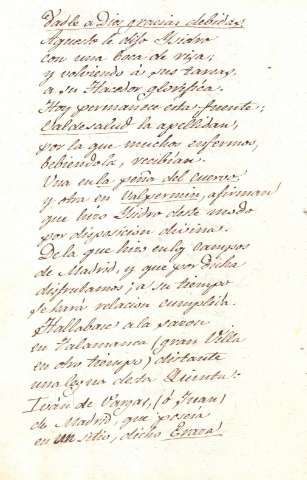 Dadle à Dios gracias debidas,
Aquesto le dijo Ysidro
con una boca de risa;
y volviendo à sus tareas,
a su Hacedor glorifica.
Hoy permanece esta fuente;
Valdesalud la apellidan,
por la que muchos enfermos,
bebiendola, recibian.
Una en la peña del Cuervo,
y otra en Valpermin, afirman
que hizo Ysidro deste modo
por disposicion divina.
De la que hizo en los campos
de Madrid, y que por dicha
disfrutamos; a su tiempo
se hará relacion cumplida.
Hallabase a la sazon
en Talamanca (gran Villa
en otro tiempo) distante
una legua desta Quinta:
Iván de Vargas, (ó Juan)
de Madrid, que poseia
en un sitio, dicho Eraza,